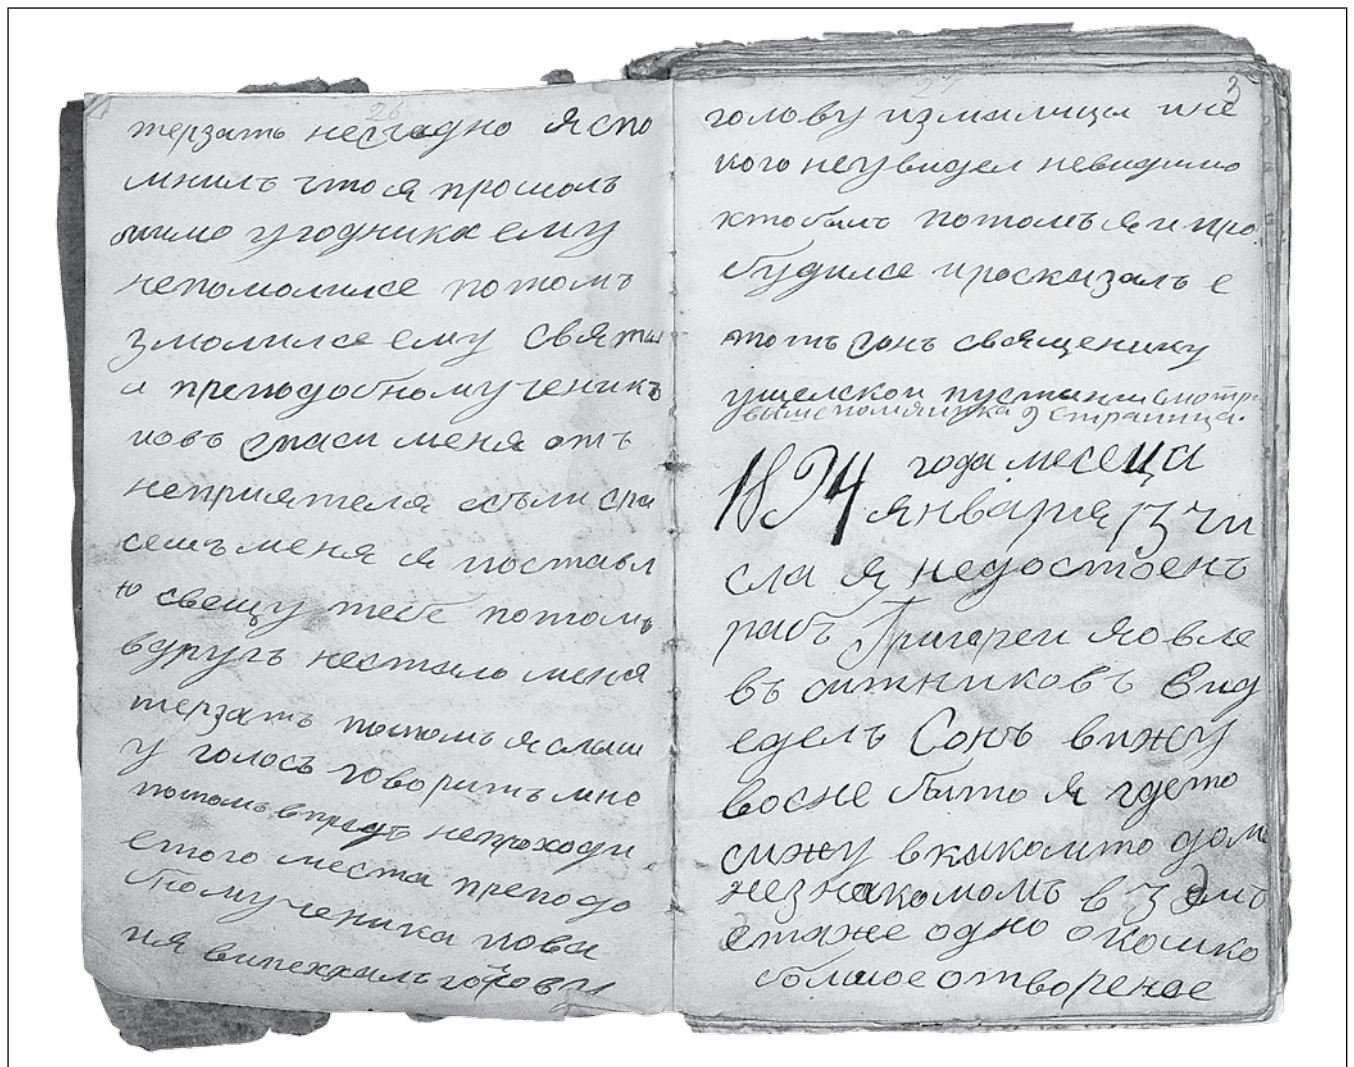 26
терзать несчадно я спо
мнилъ что я прошолъ
мимо угодника ему
непомолилсе потомъ
змолилсе ему святы
и преподобномученикъ
иовъ спаси меня отъ
неприятеля естьли спа
сешъ меня я поставл
ю свещу тебе потомъ
вдругъ нестало меня
терзать потомъ я слыш
у голосъ говоритъ мне
потомъ впредъ непроходи
етого места преподо
бномученика иова
ия голову
27
3
голову измилища ине
кого неувидел невидимо
кто былъ потомъ я и про
будилсе и росказалъ е
тотъ сонъ священику
ушелской пустыни смотри
выше помянутка 9 страница.
1894 года месеца
января 13 чи
сла я недостоенъ
рабъ Григореи яовле
въ ситниковъ Вид
еделъ Сонъ вижу
восне быто я гдето
сижу вкакомто дом
незнакомомъ в 3
етаже одно окошко
болшое отвореное